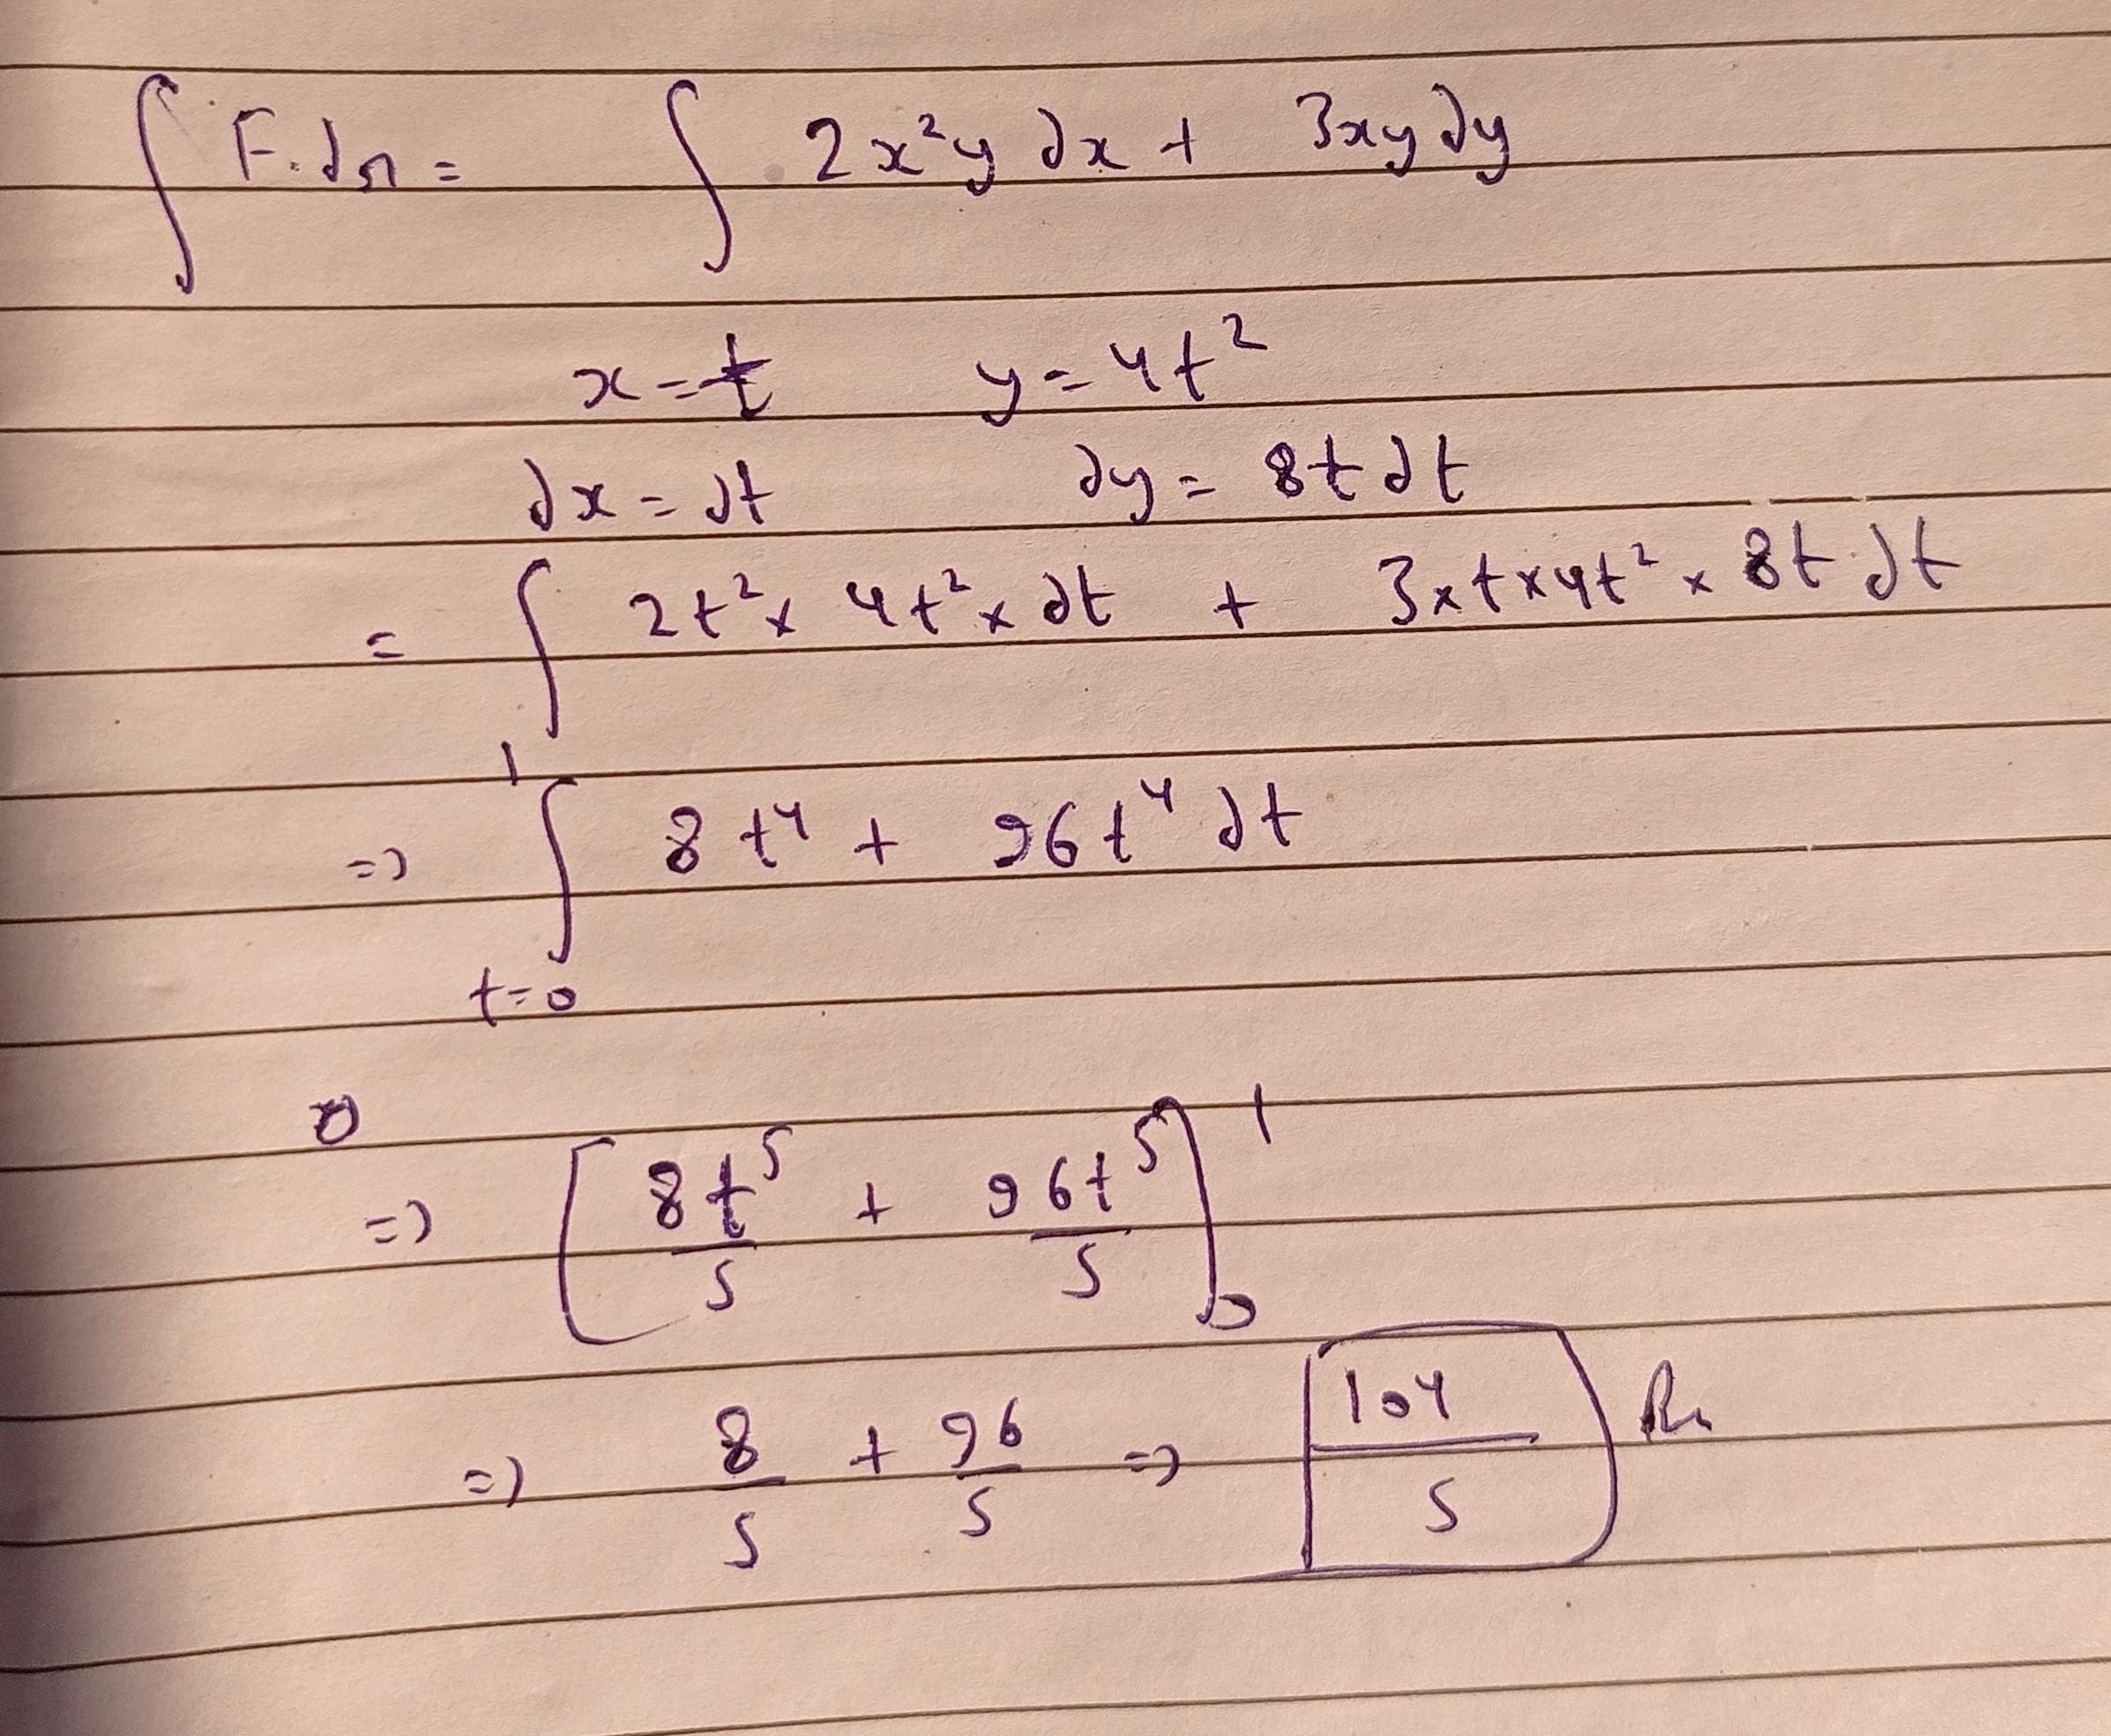 ∫ F.dr = ∫ 2x²y dx + 3xy dy
x = t y = 4t²
dx = dt dy = 8t dt
= ∫ 2t² × 4t² × dt + 3 × t × 4t² × 8t dt
=> ∫_{t=0}^{1} 8t⁴ + 96t⁴ dt
=> [8t⁵/5 + 96t⁵/5]₀¹
=> 8/5 + 96/5 => 104/5